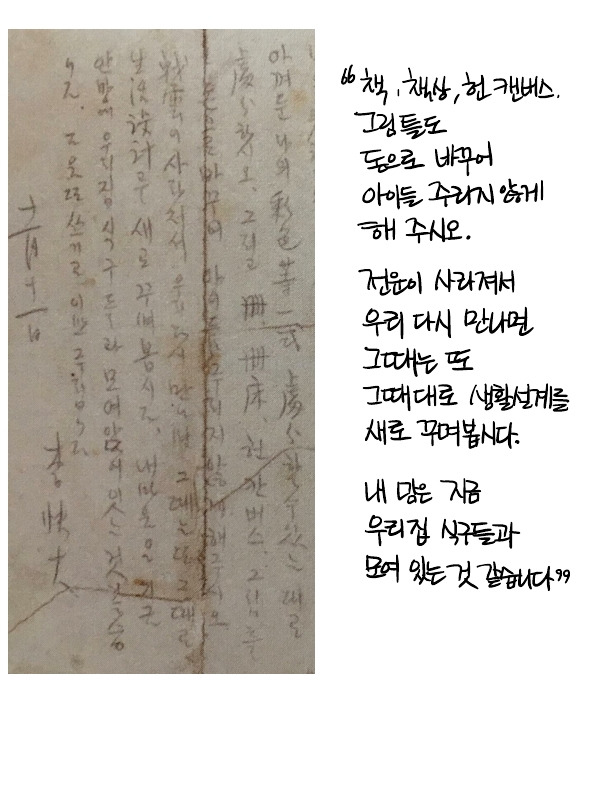 아껴둔 나의 彩色 一式 處分할 수 있는 대로
處分하시오. 그리고 冊, 冊床, 헌 칸버스, 그림들
돈으로 바꾸어 아이들 주리지 않게 해주시오
戰雲이 사라져서 우리 다시 만나면 그때는 또 그때대로
生活設計를 새로 꾸며봅시다. 내 마음은 지금
안방에 우리집 식구들과 모여앉어 있는 것 같습
니다.
十一月十一日
李快大
“책, 책상, 헌 캔버스.
그림들도
돈으로 바꾸어
아이들 주리지 않게
해 주시오.
전운이 사라져서
우리 다시 만나면
그때는 또
그때대로 생활설계를
새로 꾸며봅시다.
내 맘은 지금
우리집 식구들과
모여 있는 것 같습니다”